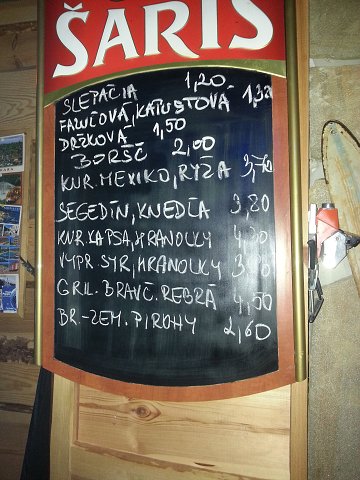 ŠARIŠ
SLEPAČIA 1,20
FAZUĽOVÁ, KAPUSTOVÁ
DRŽKOVÁ 1,50
BORŠČ 2,00
KUR. MEXIKO, RYŽA
SEGEDÍN, KNEDĽA 3,20
KUR. KAPSA, HRANOLKY
VYPR. SYR, HRANOLKY
GRIL. BRAVČ. REBRÁ 4,50
BR.-ZEM. PIROHY 2,60